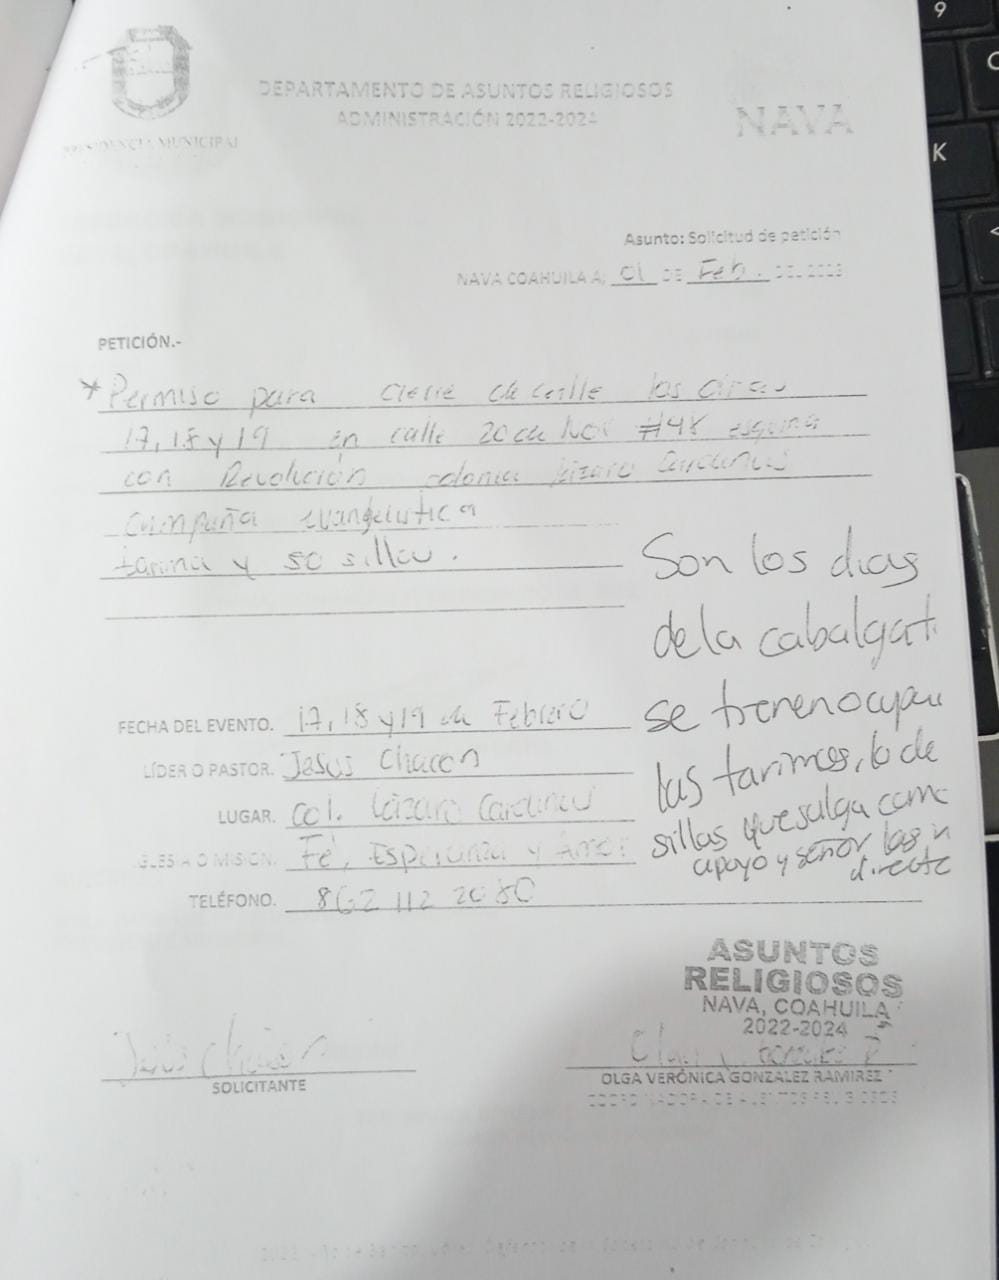 PRESIDENCIA MUNICIPAL
DEPARTAMENTO DE ASUNTOS RELIGIOSOS
ADMINISTRACIÓN 2022-2024
NAVA
Asunto: Solicitud de petición
NAVA COAHUILA A; 01 DE Feb. DEL 2023
PETICIÓN.-
* Permiso para cierre de calle los dias
17, 18 y 19 en calle 20 de Nov #48 esquina
con Revolución colonia Lázaro Cardenas
Campaña evangelistica
tarima y 50 sillas.
Son los dias
de la cabalgat
se tienen ocupa
las tarimas, lo de
sillas que salga como
apoyo y señor las
directo
FECHA DEL EVENTO. 17, 18 y 19 de Febrero
LÍDER O PASTOR. Jesus Chacon
LUGAR. Col. Lázaro Cardenas
IGLESIA O MISION. Fé, Esperanza y Amor
TELÉFONO. 862 112 2080
ASUNTOS
RELIGIOSOS
NAVA, COAHUILA
2022-2024
Jesús Chacon
SOLICITANTE
OLGA VERÓNICA GONZALEZ RAMIREZ
COORDINADORA DE ASUNTOS RELIGIOSOS